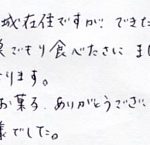 城在住ですが、できた
泉でもり食べたさに まし
ります。
お菓子、ありがとうござい
様でした。